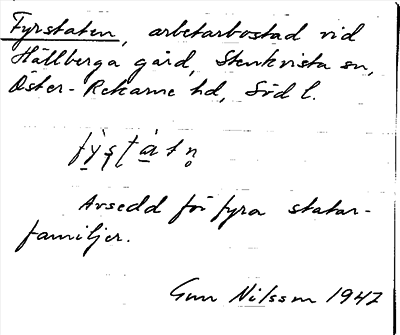 Fyrstaten, arbetarbostad vid
Hällberga gård, Stenkvista sn,
Öster-Rekarne hd, Söd l.
Avsedd för fyra statar-
familjer.
Gun Nilsson 1947